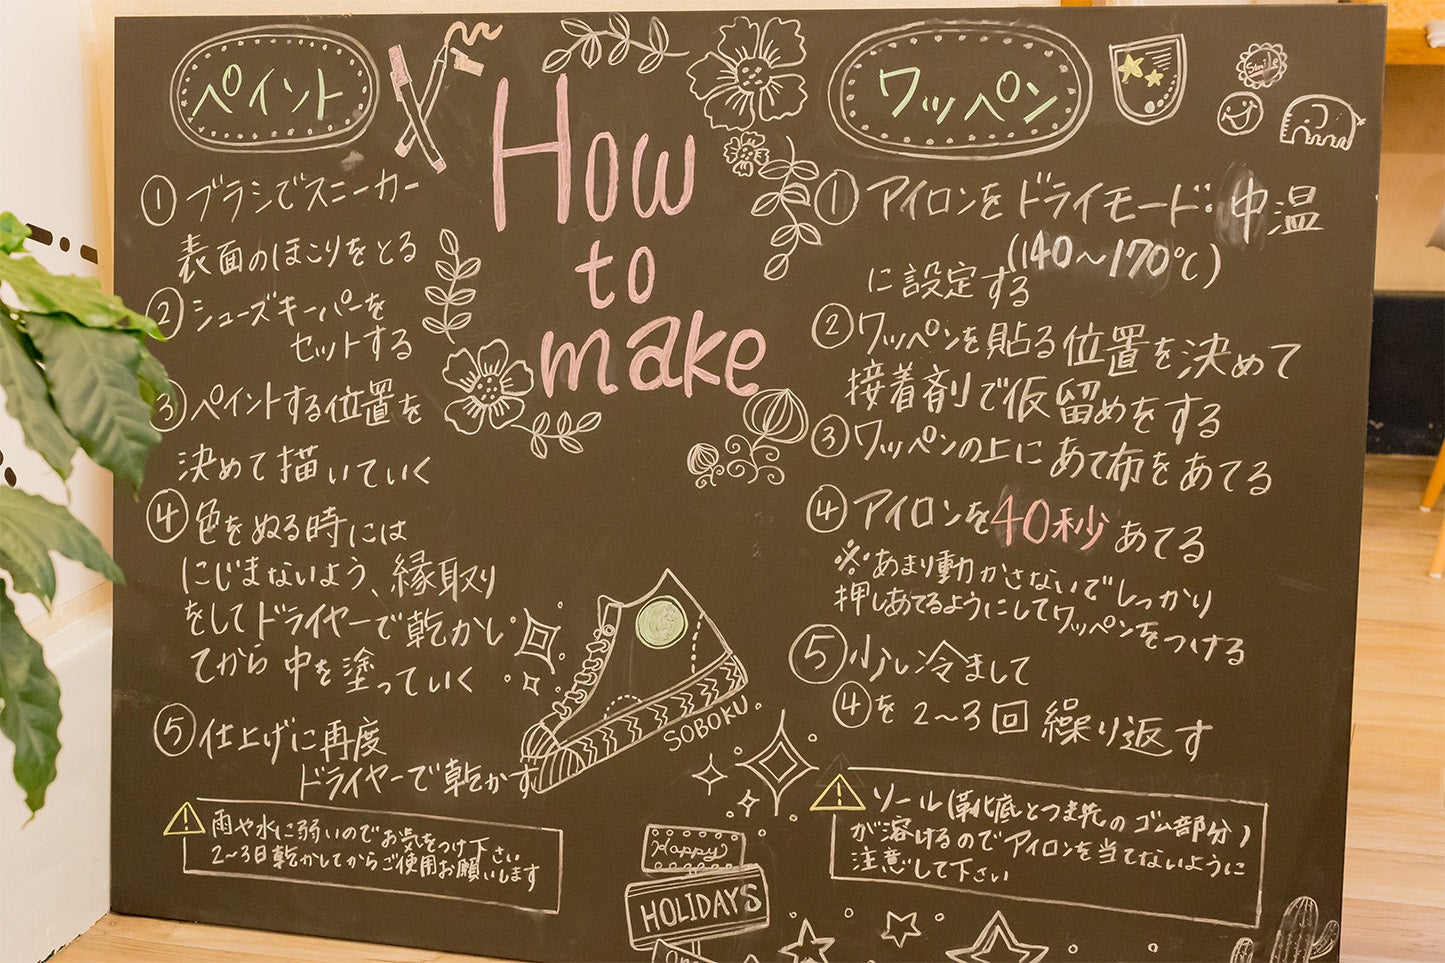 ペイント
① ブラシでスニーカー
表面のほこりをとる
② シューズキーパーを
セットする
③ ペイントする位置を
決めて描いていく
④ 色をぬる時には
にじまないよう、縁取り
をしてドライヤーで乾かし
てから中を塗っていく
⑤ 仕上げに再度
ドライヤーで乾かす
⚠ 雨や水に弱いのでお気をつけ下さい
2~3日乾かしてからご使用お願いします
How
to
make
SOBOKU.
Happy
HOLIDAYS
ワッペン
Smile
① アイロンをドライモード:中温
(140~170℃)
に設定する
② ワッペンを貼る位置を決めて
接着剤で仮留めをする
③ ワッペンの上にあて布をあてる
④ アイロンを40秒あてる
※あまり動かさないでしっかり
押しあてるようにしてワッペンをつける
⑤ 少し冷まして
④を2~3回繰り返す
⚠ ソール(靴底とつま先のゴム部分)
が溶けるのでアイロンを当てないように
注意して下さい